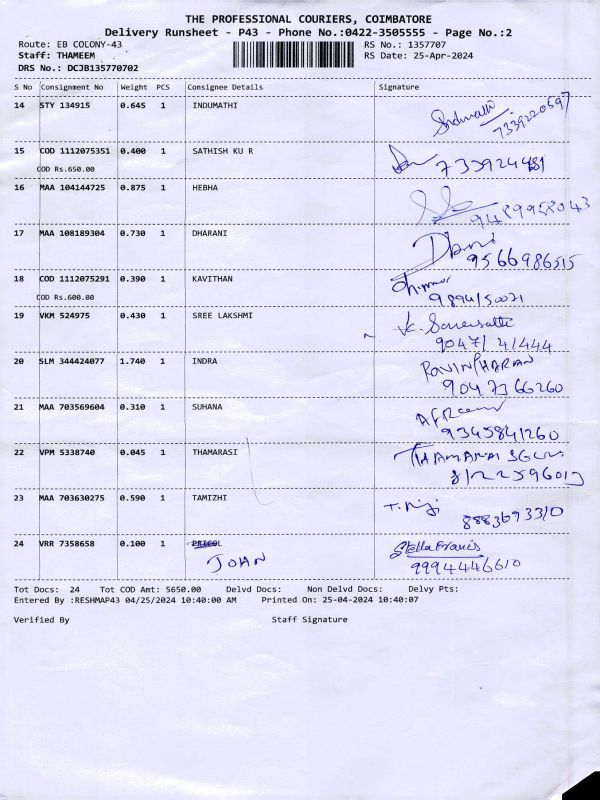 THE PROFESSIONAL COURIERS, COIMBATORE
Delivery Runsheet - P43 - Phone No.:0422-3505555 - Page No.:2
Route: EB COLONY-43 RS No.: 1357707
Staff: THAMEEM RS Date: 25-Apr-2024
DRS No.: DCJB135770702
S No Consignment No Weight PCS Consignee Details Signature
14 STY 134915 0.645 1 INDUMATHI
7339220697
15 COD 1112075351 0.400 1 SATHISH KU R
COD Rs.650.00
16 MAA 104144725 0.875 1 HEBHA
9489958043
17 MAA 108189304 0.730 1 DHARANI
9566986515
18 COD 1112075291 0.390 1 KAVITHAN
COD Rs.600.00
19 VKM 524975 0.430 1 SREE LAKSHMI
20 SLM 344424077 1.740 1 INDRA
9047366260
21 MAA 703569604 0.310 1 SUHANA
9345841260
22 VPM 5338740 0.045 1 THAMARASI
23 MAA 703630275 0.590 1 TAMIZHI
8883693310
24 VRR 7358658 0.100 1 PRICOL Stella Francis
JOHN 9994446610
Tot Docs: 24 Tot COD Amt: 5650.00 Delvd Docs: Non Delvd Docs: Delvy Pts:
Entered By :RESHMAP43 04/25/2024 10:40:00 AM Printed On: 25-04-2024 10:40:07
Verified By Staff Signature